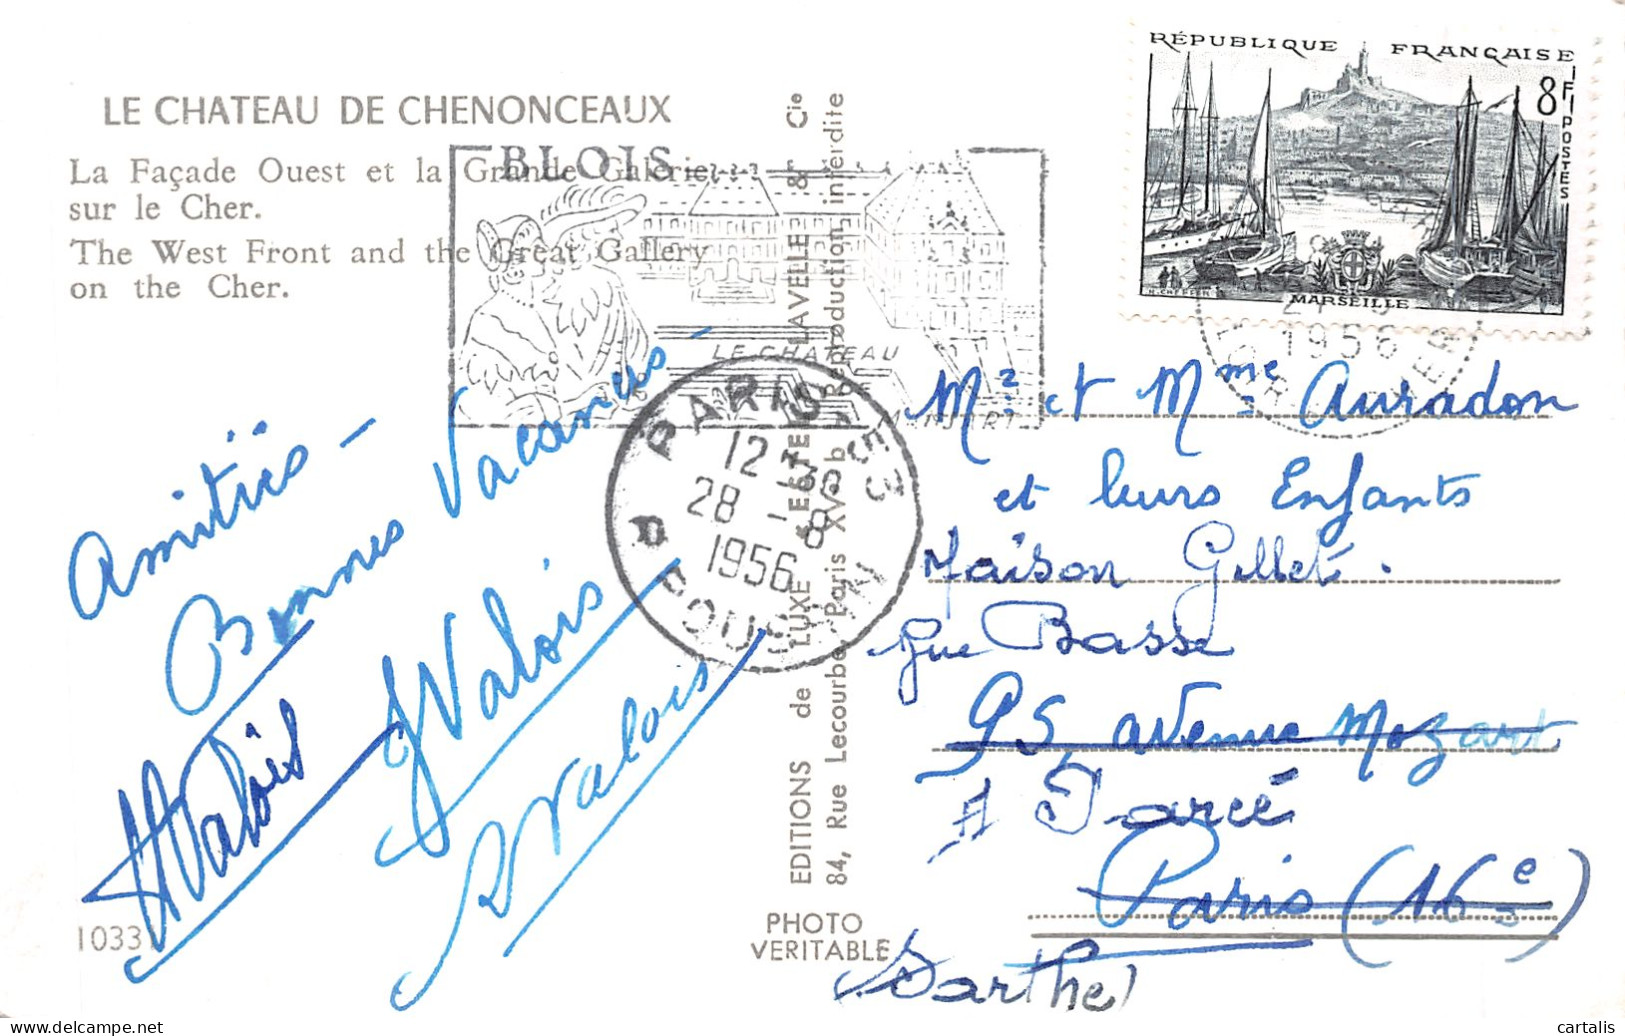 LE CHATEAU DE CHENONCEAUX
La Façade Ouest et la Grande Galerie
sur le Cher.
The West Front and the Great Gallery
on the Cher.
BLOIS
LE CHATEAU
Amitiés -
Bonnes Vacances -
Valois
Valois
Valois
1033
PARIS
12-30
28-8
1956
EDITIONS de LUXE "ESTEL" LAVELLE & Cie
84, Rue Lecourbe, Paris XV Reproduction interdite
PHOTO
VERITABLE
RÉPUBLIQUE FRANÇAISE
8F
POSTES
MARSEILLE
1956
Mr et Mme Auradon
et leurs Enfants
Maison Gillet.
Rue Basse
95, avenue Mozart
à Jarcé
Paris (16e)
(Sarthe)
cartalis